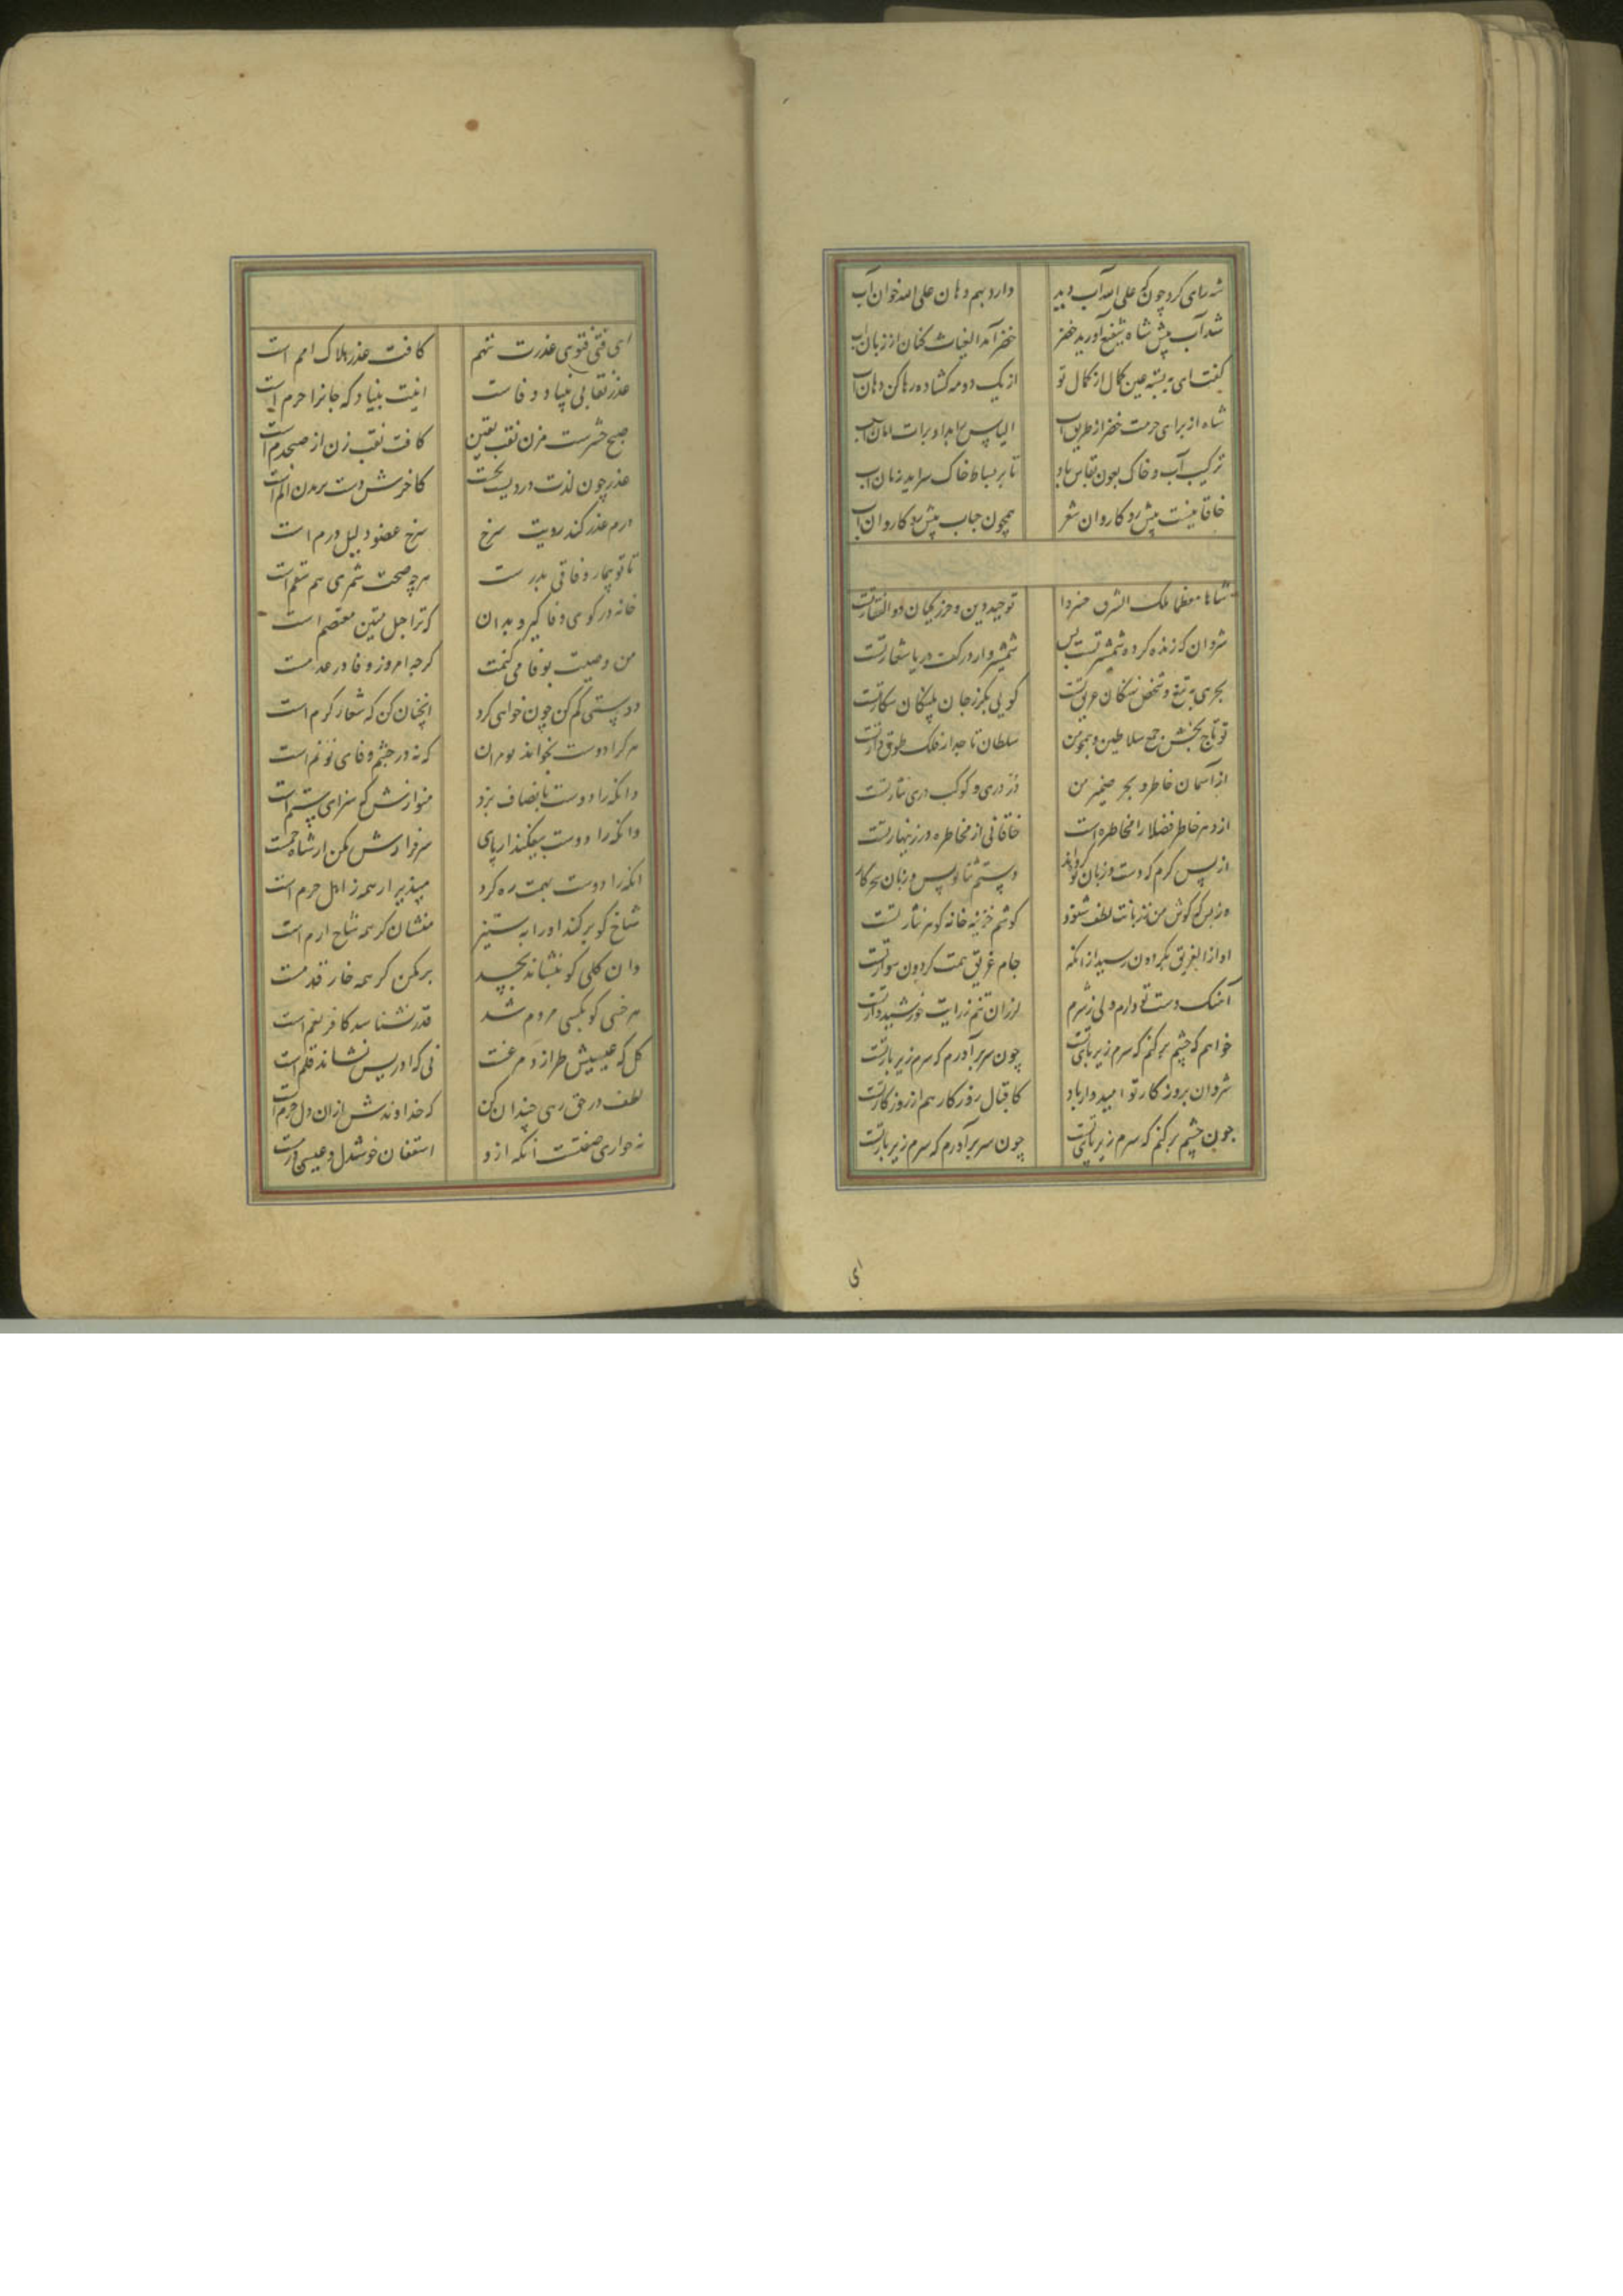 شه رای کرد چون علی الله آب دید دارد بهم دهان علی الله خوان آب
شد آب پیش شاه شفیع آورید خضر خضر آمد الغیاث کنان از زبان آب
گفت ای به بسته عین کمال از کمال تو از یک دو مه گشاده رها کن دهان آب
شاه از برای حرمت خضر از طریق آب الیاس را بداد برات امان آب
ترکیب آب و خاک بعون بقاش باد تا بر بساط خاک سراید زمان آب
خاقانیست پیش رو کاروان شعر همچون حباب پیش رو کاروان آب
شاها معظما ملک الشرق خسروا توحید دین و حرز کیان ذوالفقار تست
شروان که زنده کرده شمشیر تست بس شمشیروار در کف دریا شعار تست
بحری به تیغ و شخص نهنگان غریق تست گویی بگرز جان پلنگان شکار تست
تو تاج بخش جمع سلاطین و همچو من سلطان تاجدار فلک طوق دار تست
از آسمان خاطر و بحر ضمیر من در دری و کوکب دری نثار تست
از دهر خاطر فضلا را مخاطره است خاقانی از مخاطره در زینهار تست
از پس کرم که دست و زبان تو کرده اند دستم ثنا نویس و زبان سحر کار
وز بس که گوش من ز زبانت لطف شنود گوشم خزینه خانه گوهر نثار تست
آواز الغریق بگردون رسید از آنکه جانم غریق همت گردون سوار تست
آهنگ دست تو دارم ولی ز شرم لرزان تنم ز رایت خورشیدوار تست
خواهم که چشم بر کنم که سرم زیر پای تست چون سر برآورم که سرم زیر بار تست
شروان بروزگار تو امیدوار باد کاقبال روزگار هم از روزگار تست
چون چشم برکنم که سرم زیر پای تست چون سر برآورم که سرم زیر بار تست
ای
ای فتی فتوی غدرت ننهم کافت غدر هلاک امم است
غدر نقابی بنیاد وفاست اینت بنیاد که جانرا حرم است
صبح حشرست مزن نقب یقین کافت نقب زن از صبحدم است
غدر چون لذت دردیست کاخرش دست بریدن الم است
ورم غدر کند رویت سرخ سرخ عضو دلیل ورم است
تا تو بیمار وفاقی بدرست هر چه صحت شمری هم سقم است
خانه در کوی وفا گیر و بدان که ترا حبل متین معتصم است
من وصیت بوفا می کنمت گرچه امروز وفا در عدمست
دوستی کم کن چون خواهی کرد آنچنان کن که شعار کرم است
هر کرا دوست بخواند بو مران که نه در چشم وفای تو نم است
وانکه را دوست بانصاف بزد منوازش که سزای ستم است
وانکه را دوست بیفکند از پای سرفرازش مکن ار شاه جمست
آنکه را دوست بهمت ره کرد مپذیر ار همه ز اهل حرم است
شاخ کو بر کند او را به ستیز منشان گر همه شاخ ارم است
وان گلی کو بنشاند بجهد بر مکن گر همه خار قدمست
هر خسی کو بکسی مردم شد قدر نشناسد کافر نعم است
گل که عیسیش طرازد مرغست نی که ادریس نشاند قلم است
لطف در حق رهی چندان کن که خداوندش از آن دل خرم است
نه حواری صفتست آنکه ازو اسقفان خوشدل و عیسی دژمست